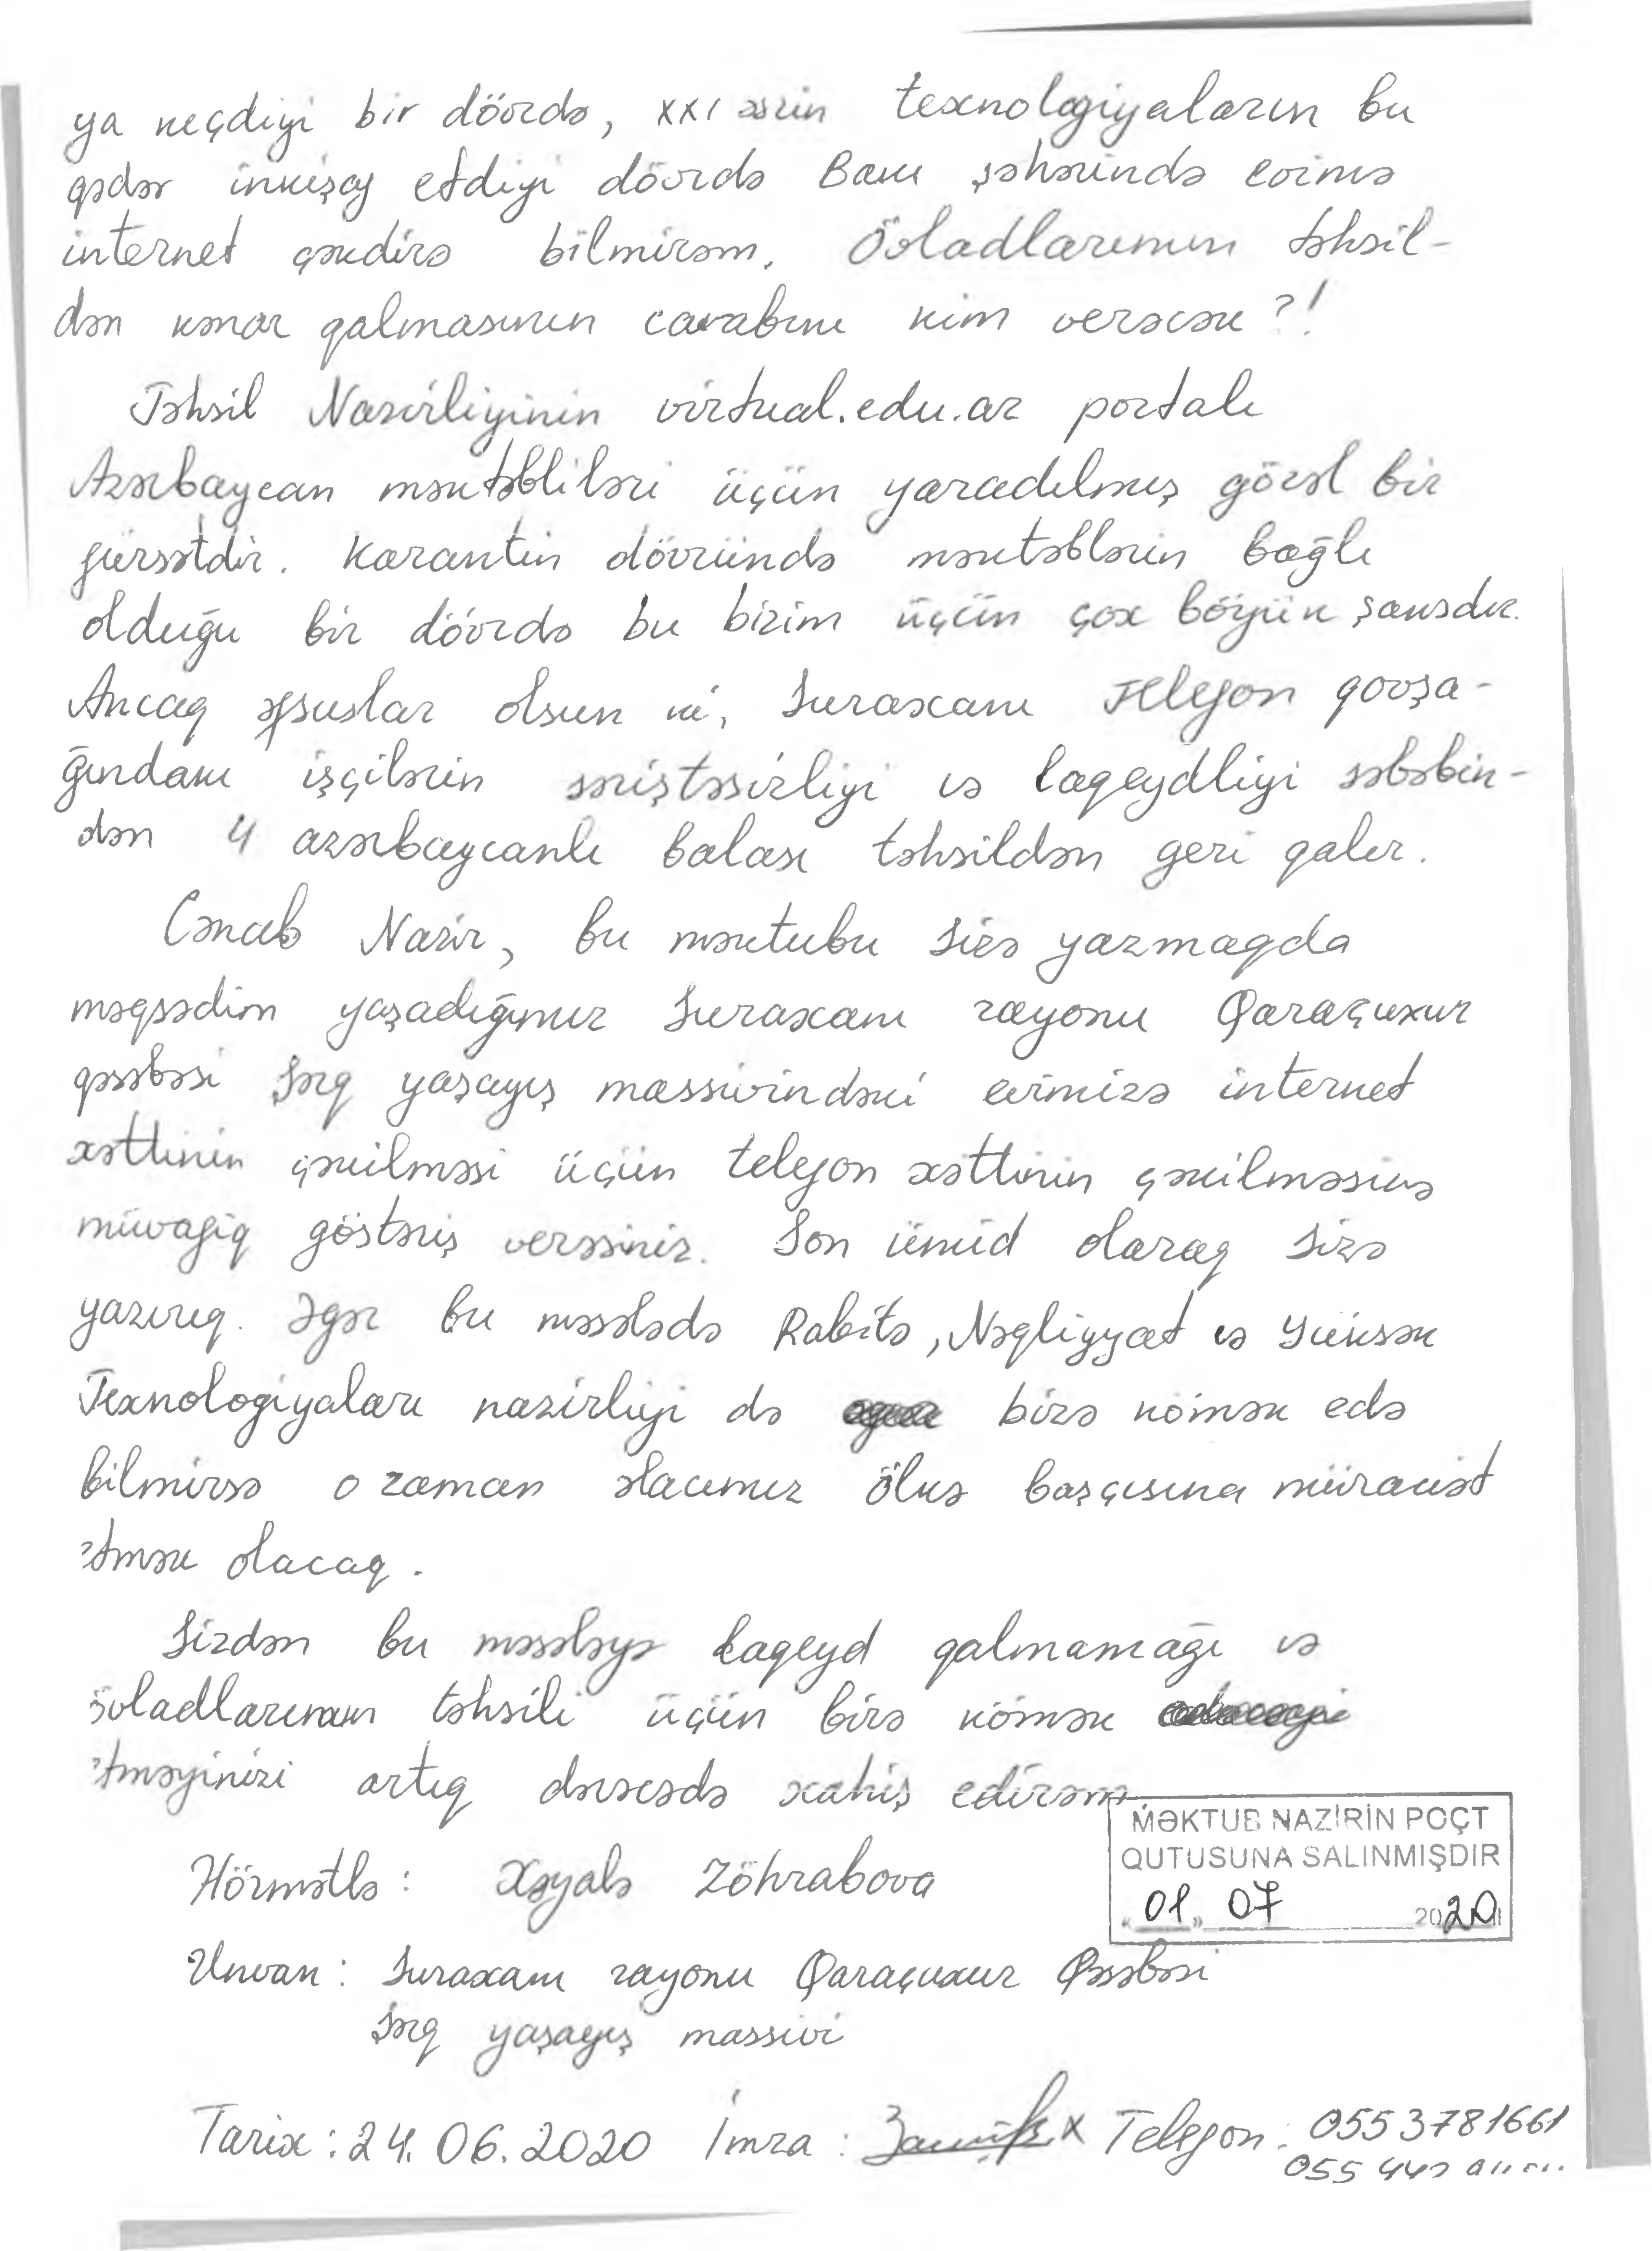 ya keçdiyi bir dövrdə, XXI əsrin texnologiyaların bu
qədər inkişaf etdiyi dövrdə Bakı şəhərində evimə
internet çəkdirə bilmirəm. Övladlarımın təhsil-
dən kənar qalmasının cavabını kim verəcək?!
Təhsil Nazirliyinin virtual.edu.az portalı
Azərbaycan məktəbliləri üçün yaradılmış gözəl bir
fürsətdir. Karantin dövründə məktəblərin bağlı
olduğu bir dövrdə bu bizim üçün çox böyük şansdır.
Ancaq əfsuslar olsun ki, Suraxanı Telefon qovşa-
ğındakı işçilərin səriştəsizliyi və laqeydliyi səbəbin-
dən 4 azərbaycanlı balası təhsildən geri qalır.
Cənab Nazir, bu məktubu Sizə yazmaqda
məqsədim yaşadığımız Suraxanı rayonu Qaraçuxur
qəsəbəsi Şərq yaşayış massivindəki evimizə internet
xəttinin çəkilməsi üçün telefon xəttinin çəkilməsinə
müvafiq göstəriş verəsiniz. Son ümid olaraq Sizə
yazırıq. Əgər bu məsələdə Rabitə, Nəqliyyat və Yüksək
Texnologiyaları nazirliyi də bizə kömək edə
bilmirsə o zaman əlacımız ölkə başçısına müraciət
etmək olacaq.
Sizdən bu məsələyə laqeyd qalmamağı və
övladlarımın təhsili üçün bizə kömək
etməyinizi artıq dərəcədə xahiş edirəm.
MƏKTUB NAZİRİN POÇT
QUTUSUNA SALINMIŞDIR
«01» 07 2020
Hörmətlə: Xəyalə Zöhrabova
Ünvan: Suraxanı rayonu Qaraçuxur Qəsəbəsi
Şərq yaşayış massivi
Tarix: 24.06.2020 İmza: Telefon: 055 3781661
055